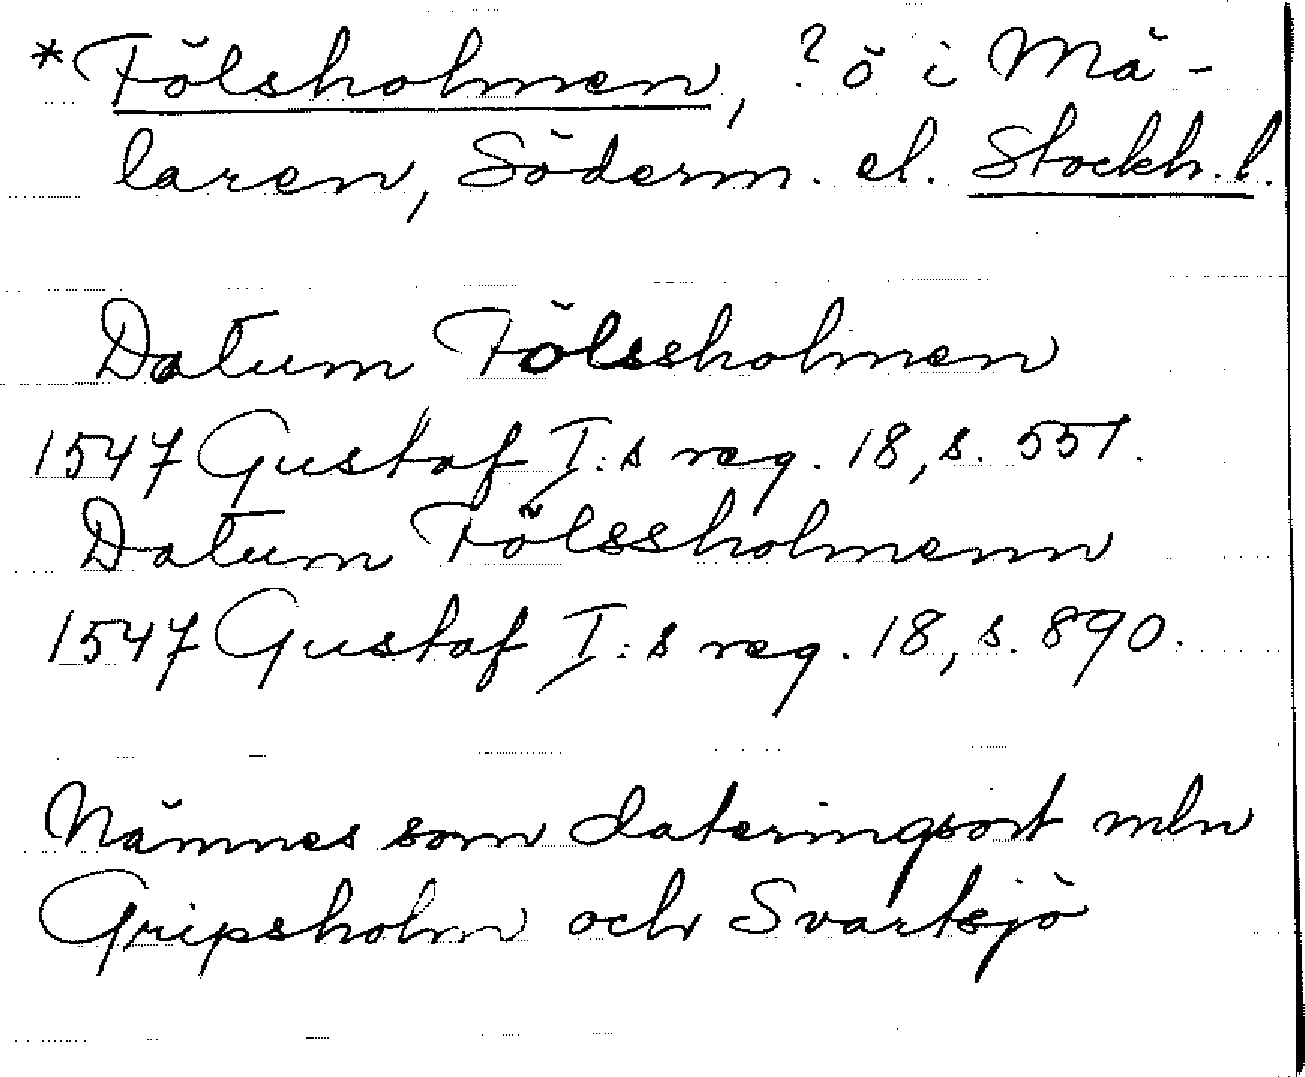 *Fölsholmen, ? ö i Mä-
laren, Söderm. el. Stockh. l.
Datum Fölssholmen
1547 Gustaf I:s reg. 18, s. 551.
Datum Fölssholmenn
1547 Gustaf I:s reg. 18, s. 890.
Nämnes som dateringsort mln
Gripsholm och Svartsjö